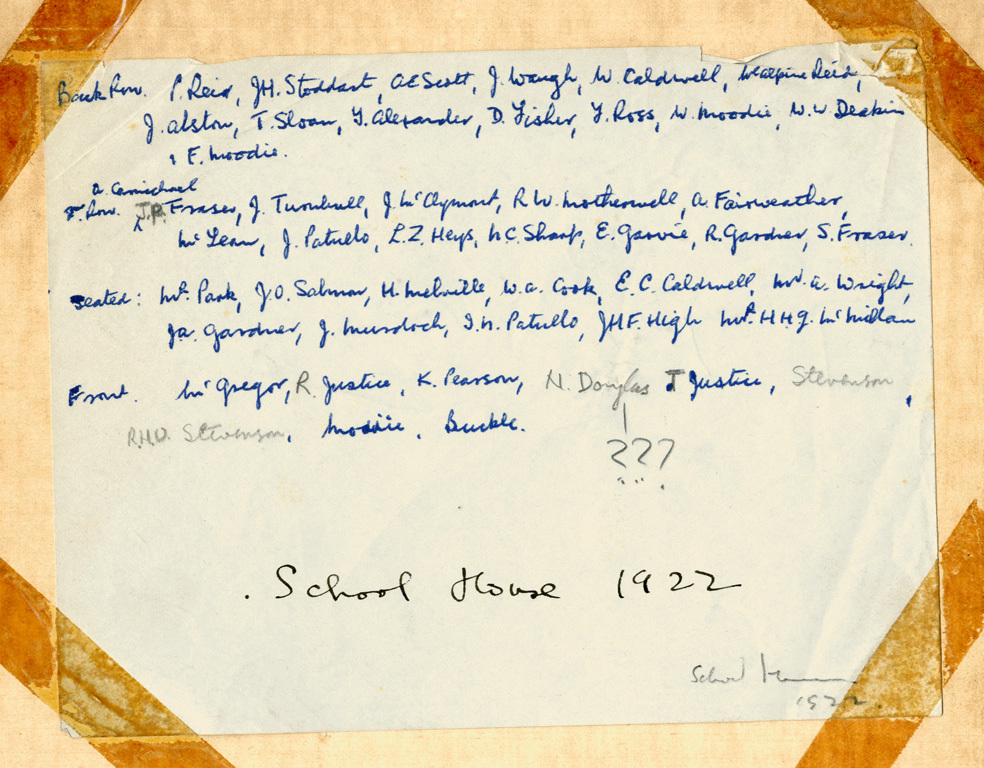 Back Row. P. Reid, JH. Stoddart, A E Scott, J. Waugh, W. Caldwell, McAlpine Reid,
J. Alston, T. Sloan, Y. Alexander, D. Fisher, Y. Ross, W. Moodie, W. W Deakin
& E. Moodie.
A. Carmichael
Row. J.P. Fraser, J. Turnbull, J. McClymont, R. W. Motherwell, A. Fairweather,
McLean, J. Patullo, L. Z. Heys, N. C. Sharp, E. Garvie, R. Gardner, S. Fraser.
Seated: Mr. Park, J. O. Salmon, H. Melville, W. A. Cook, E. C. Caldwell, Mr. A. Wright,
JA. Gardner, J. Murdoch, I. N. Patullo, JHF. High Mr. H H G. McMillan
Front. McGregor, R. Justice, K. Pearson, N. Douglas J Justice, Stevenson,
R.H.D. Stevenson, Moodie, Buckle.
???
. School House 1922
School
1922.